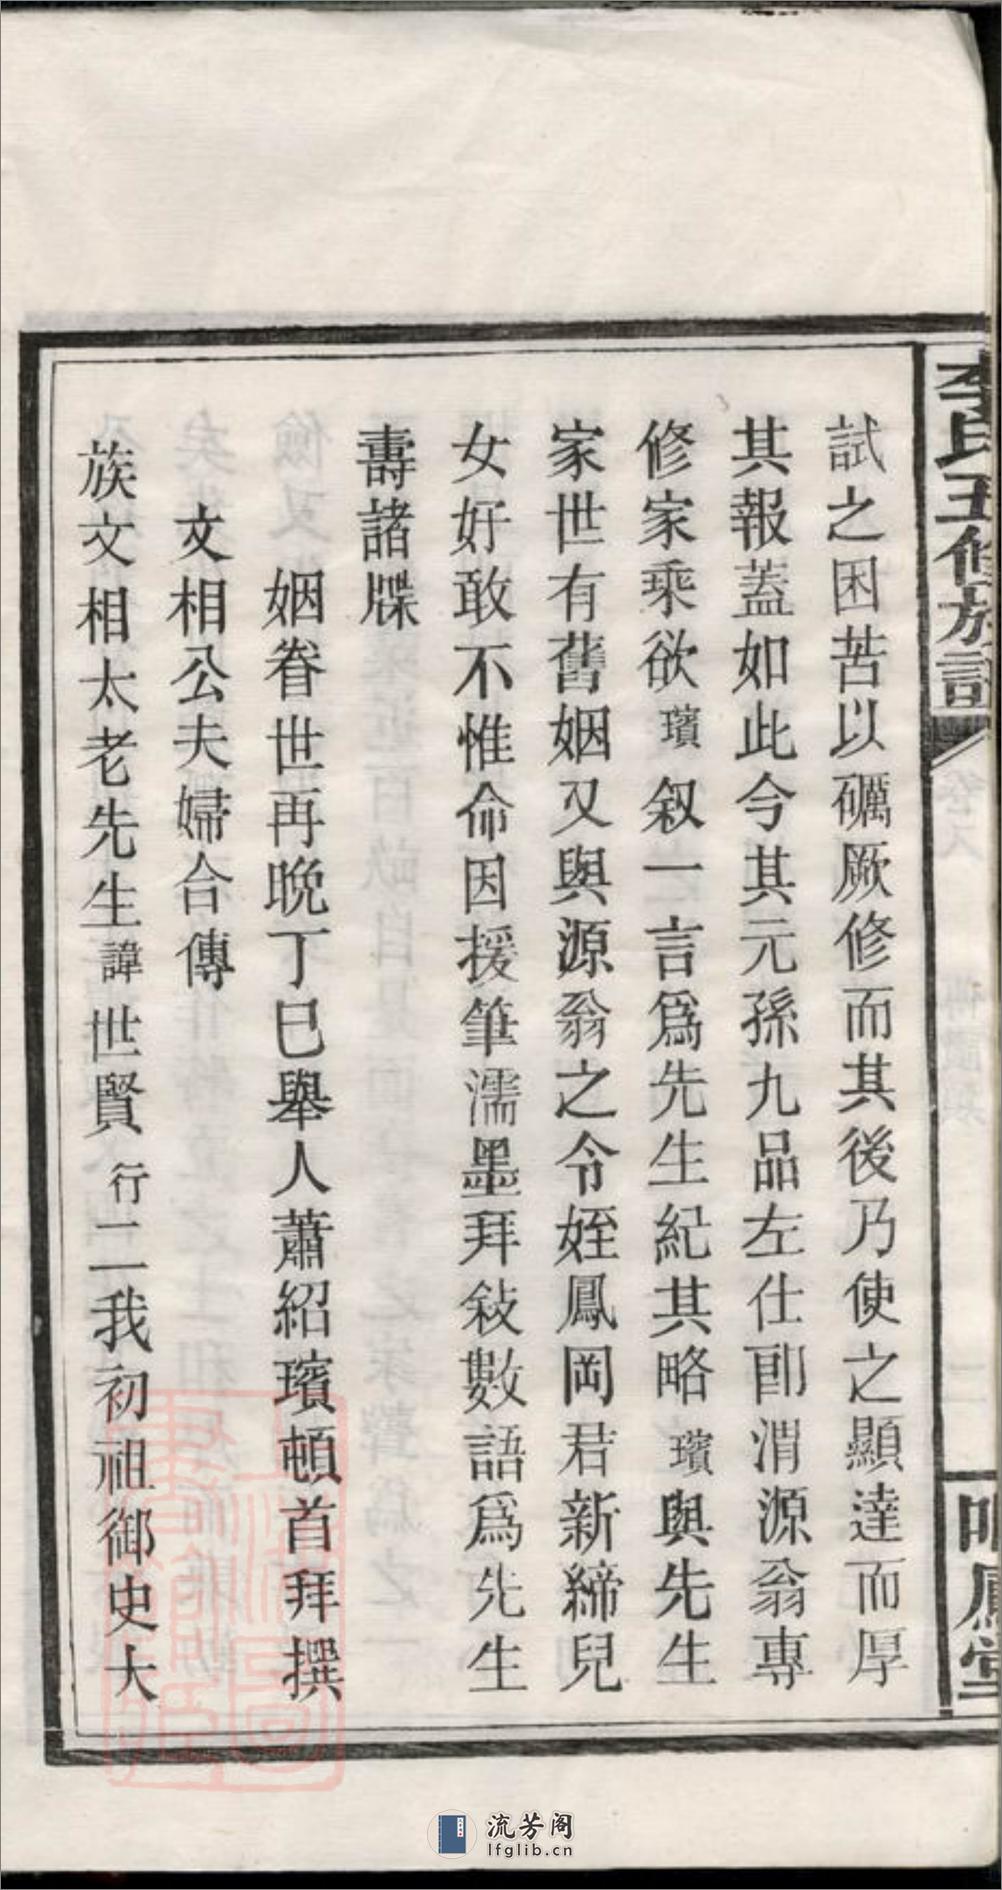 李氏五修族譜
鳳堂
試之困苦以礪厥修而其後乃使之顯達而厚
其報蓋如此今其元孫九品左仕郎渭源翁專
修家乘欲璸叙一言爲先生紀其略璸與先生
家世有舊姻又與源翁之令姪鳳岡君新締兒
女好敢不惟命因援筆濡墨拜敍數語爲先生
壽諸牒
姻眷世再晚丁巳舉人蕭紹璸頓首拜撰
文相公夫婦合傳
族文相太老先生諱世賢行二我初祖御史大
流芳阁
lfglib.cn